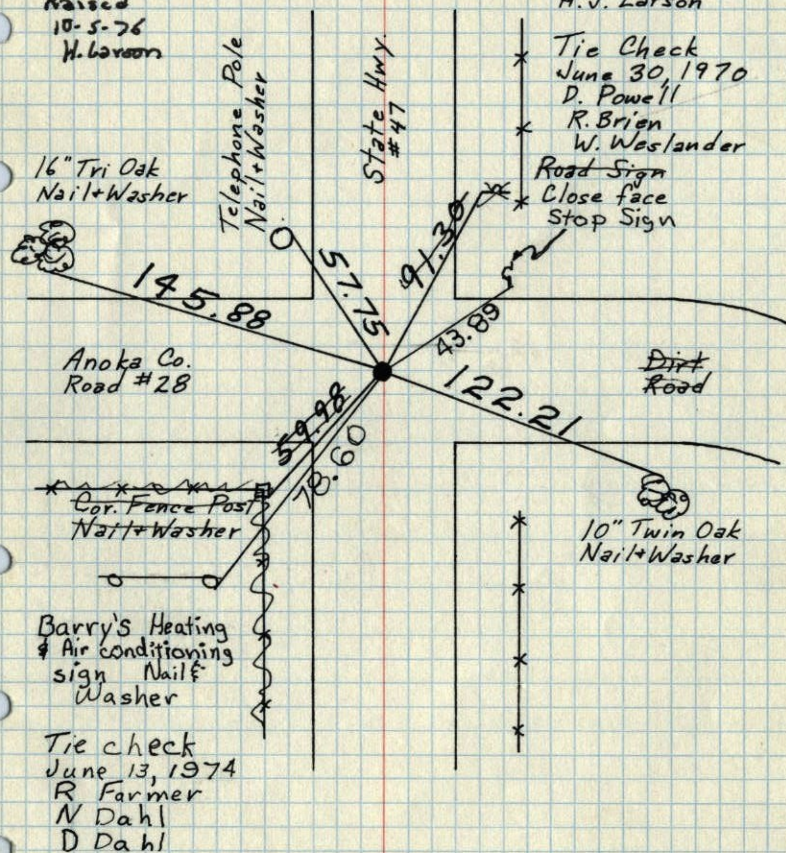 Raised
10-5-76
H. Larson
H.J. Larson
Tie Check
June 30, 1970
D. Powell
R. Brien
W. Weslander
Road Sign
Close face
Stop Sign
Telephone Pole
Nail & Washer
State Hwy.
#47
16" Tri Oak
Nail & Washer
145.88
57.75
91.30
43.89
Anoka Co.
Road #28
Dirt
Road
122.21
59.98
78.60
Cor. Fence Post
Nail & Washer
10" Twin Oak
Nail & Washer
Barry's Heating
& Air conditioning
sign Nail &
Washer
Tie check
June 13, 1974
R Farmer
N Dahl
D Dahl